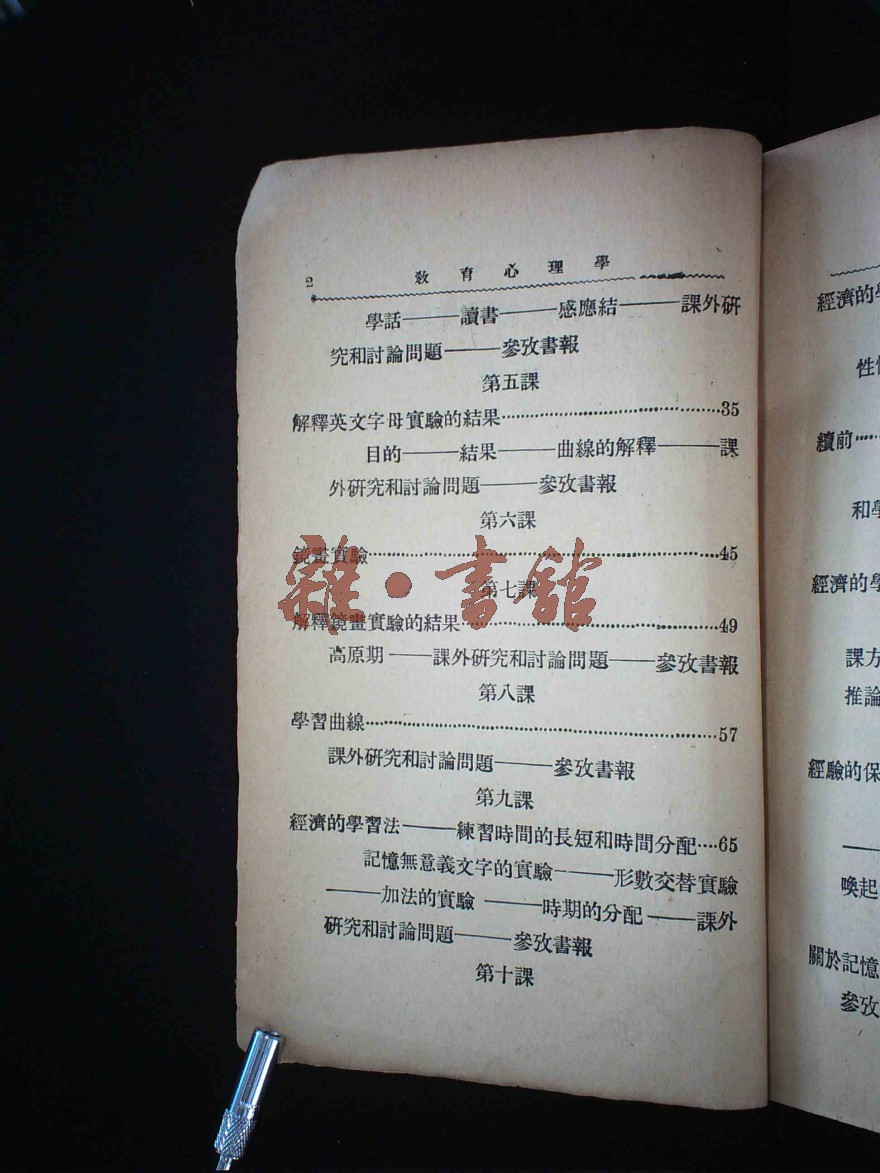 2 教育心理學
學話———讀書———感應結———課外研
究和討論問題———參攷書報
第五課
解釋英文字母實驗的結果…………………………35
目的———結果———曲線的解釋———課
外研究和討論問題———參攷書報
第六課
鏡畫實驗…………………………………………45
第七課
解釋鏡畫實驗的結果………………………………49
高原期———課外研究和討論問題———參攷書報
第八課
學習曲線…………………………………………57
課外研究和討論問題———參攷書報
第九課
經濟的學習法———練習時間的長短和時間分配….65
記憶無意義文字的實驗———形數交替實驗
———加法的實驗———時期的分配———課外
研究和討論問題———參攷書報
第十課
雜·書館
經濟的學
性
續前……
和學
經濟的學
課方
推論
經驗的保
喚起
關於記憶
參攷